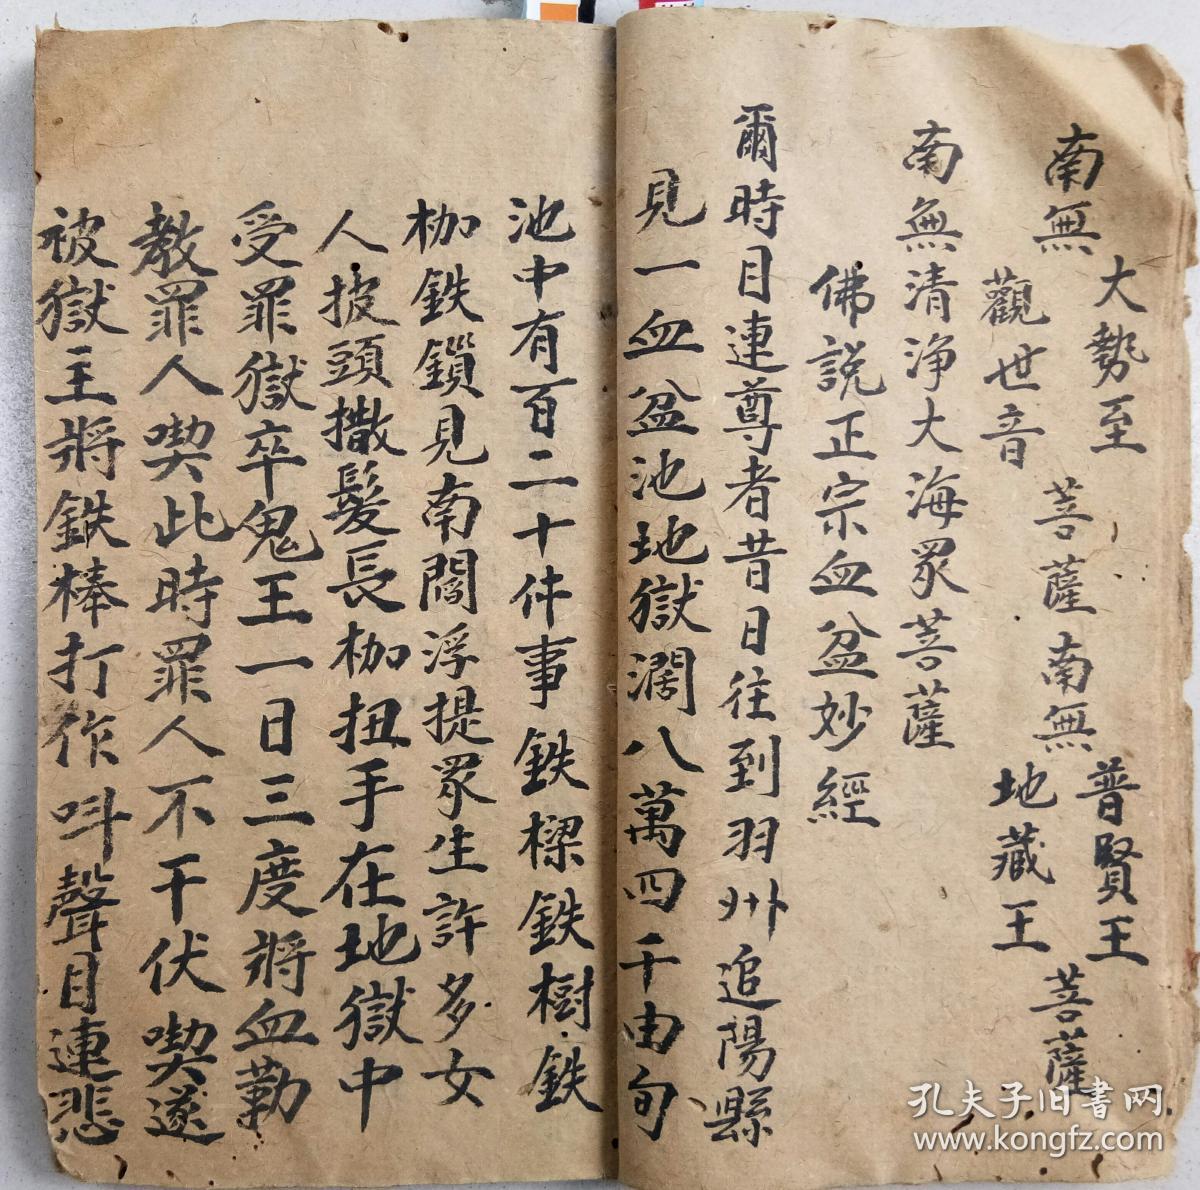 南無 大勢至 觀世音 菩薩 南無 普賢王 地藏王 菩薩
南無清淨大海眾菩薩
佛説正宗血盆妙經
爾時目連尊者昔日往到羽州追陽縣
見一血盆池地獄濶八萬四千由旬
池中有百二十件事鉄樑鉄樹鉄
枷鉄鎖見南閻浮提眾生許多女
人披頭撒髮長枷扭手在地獄中
受罪獄卒鬼王一日三度將血勒
教罪人喫此時罪人不干伏喫遂
被獄主將鉄棒打作呌聲目連悲
孔夫子旧书网
www.kongfz.com